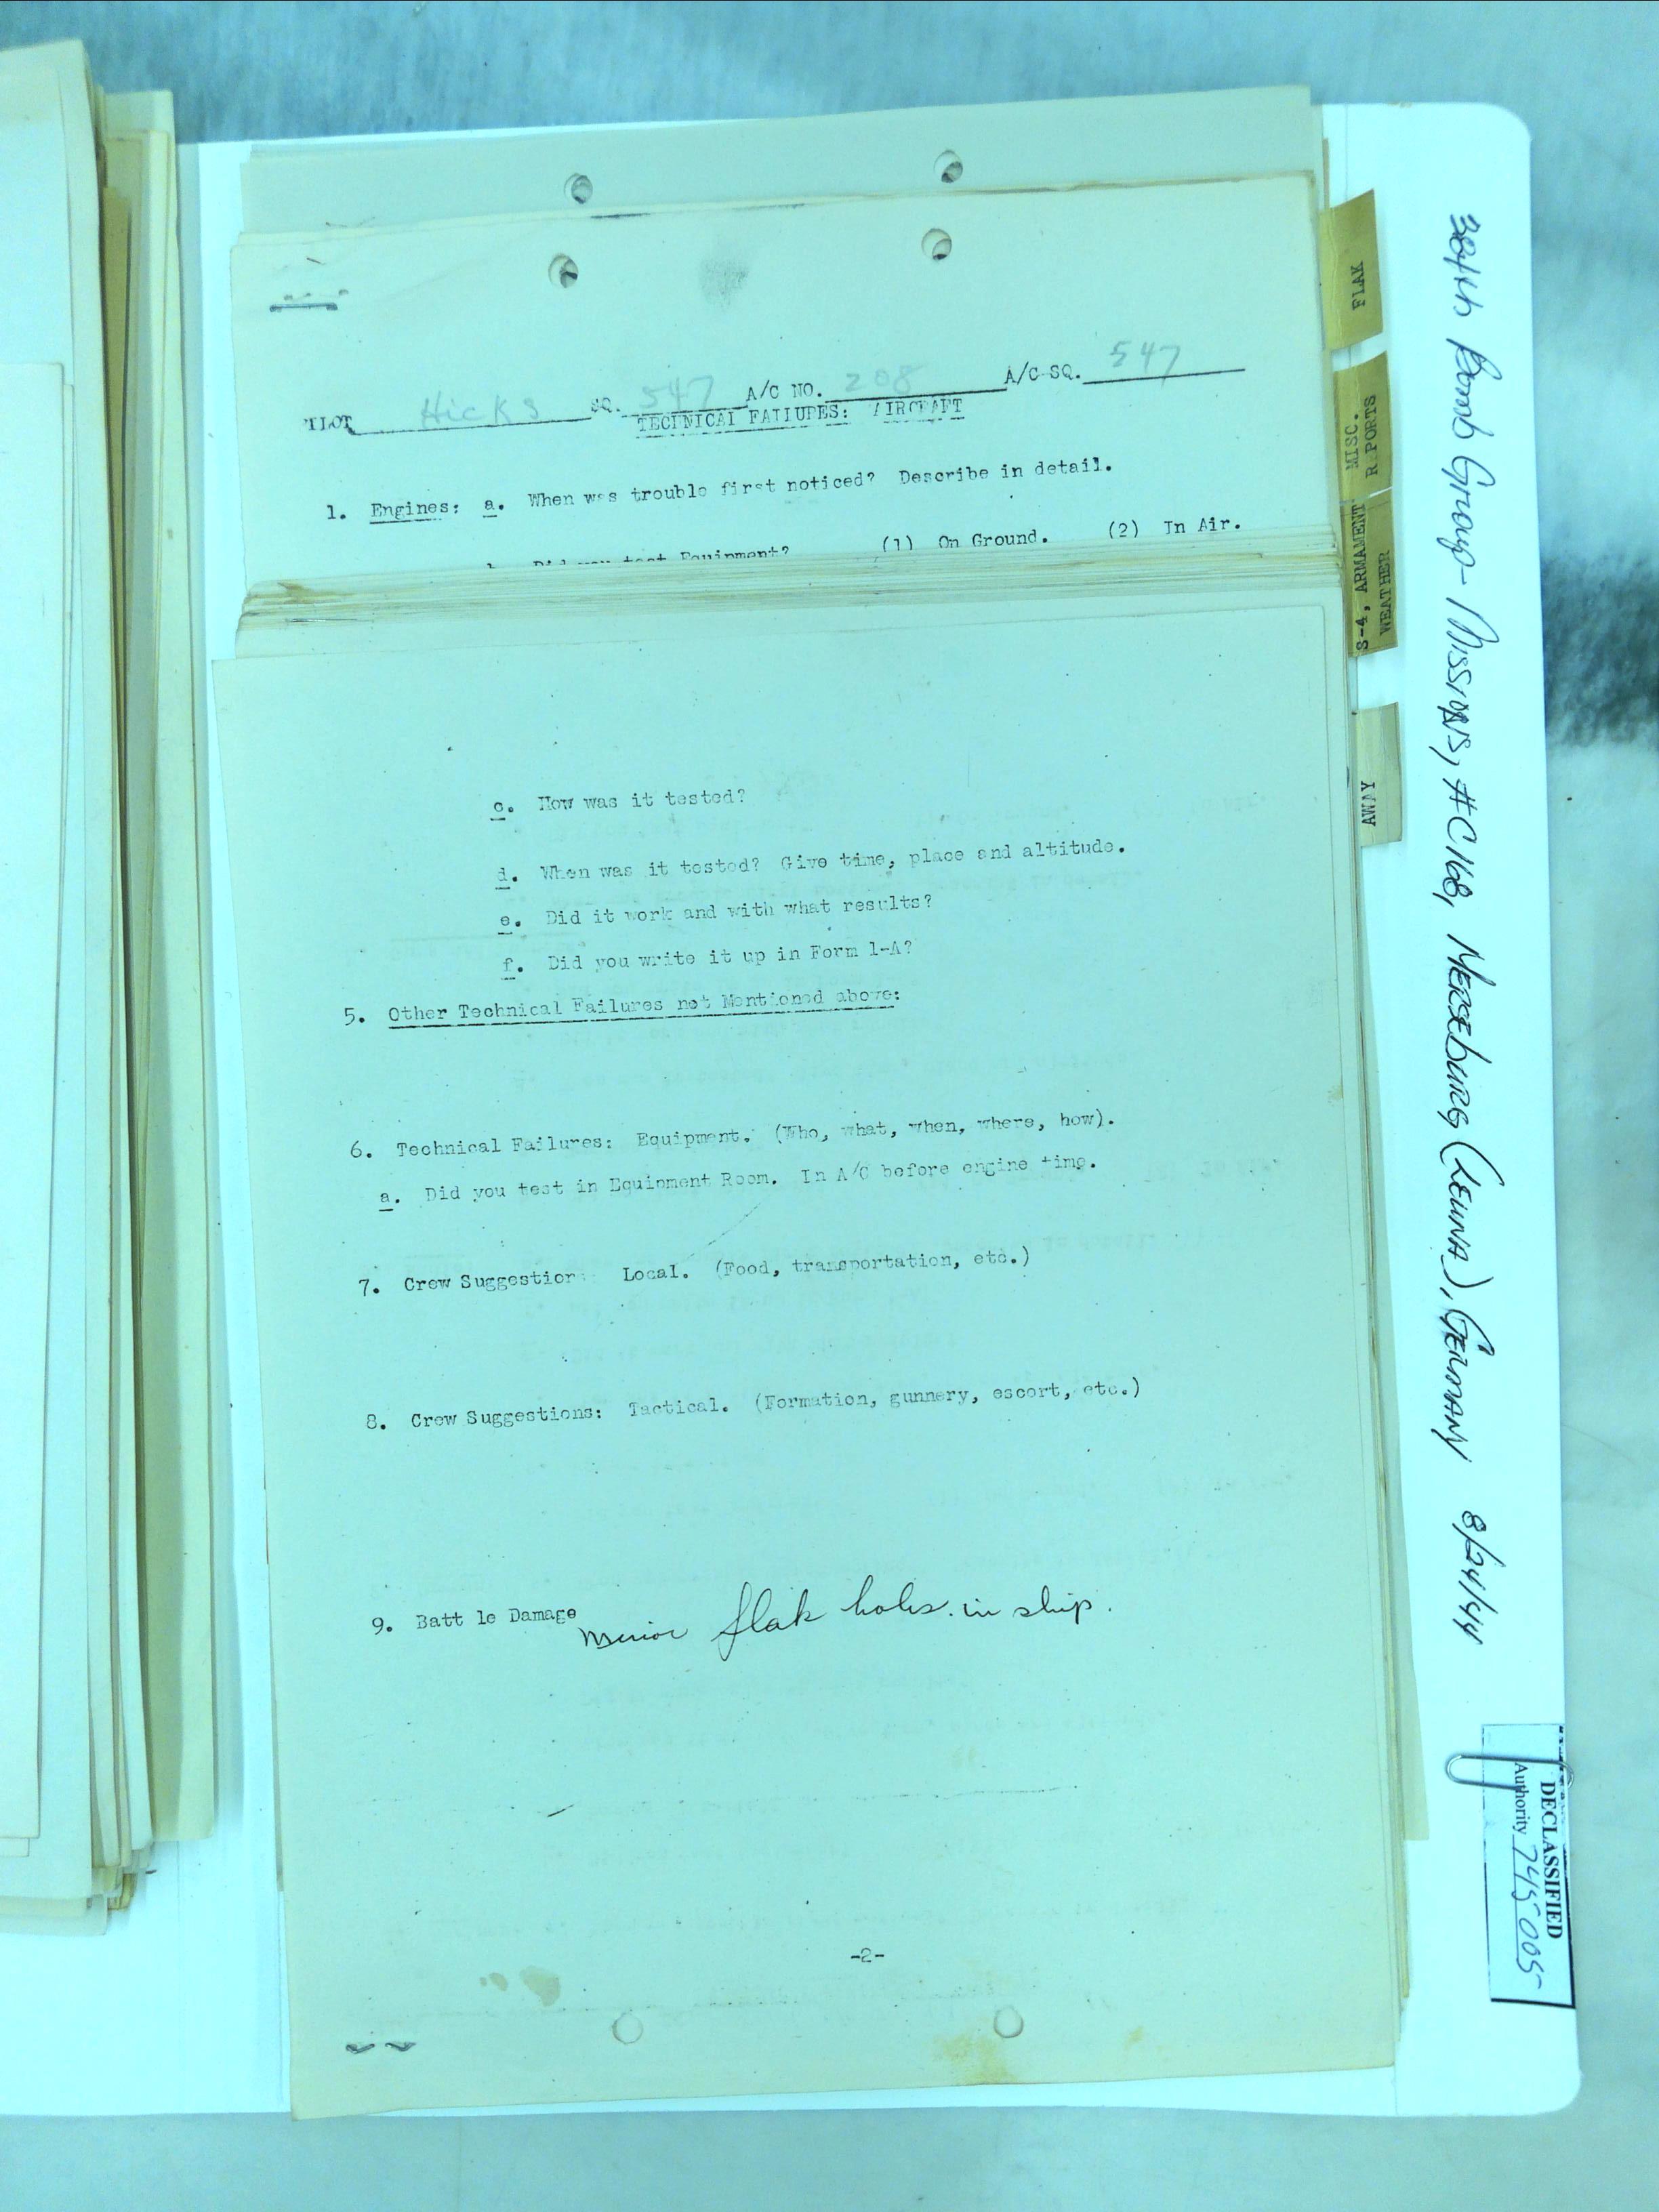 PILOT Hicks SQ. 547 A/C NO. 208 A/C SQ. 547
TECHNICAL FAILURES: AIRCRAFT
1. Engines: a. When was trouble first noticed? Describe in detail.
Did you test Equipment? (1) On Ground. (2) In Air.
c. How was it tested?
d. When was it tested? Give time, place and altitude.
e. Did it work and with what results?
f. Did you write it up in Form 1-A?
5. Other Technical Failures not Mentioned above:
6. Technical Failures: Equipment. (Who, what, when, where, how).
a. Did you test in Equipment Room. In A/C before engine time.
7. Crew Suggestion: Local. (Food, transportation, etc.)
8. Crew Suggestions: Tactical. (Formation, gunnery, escort, etc.)
9. Batt le Damage minor flak holes in ship.
-2-
FLAK
MISC.
R PORTS
S-4, ARMAMENT
WEATHER
AWAY
384th Bomb Group - Missions, #C168, Merseburg (Leuna), Germany 8/24/44
DECLASSIFIED
Authority 745005